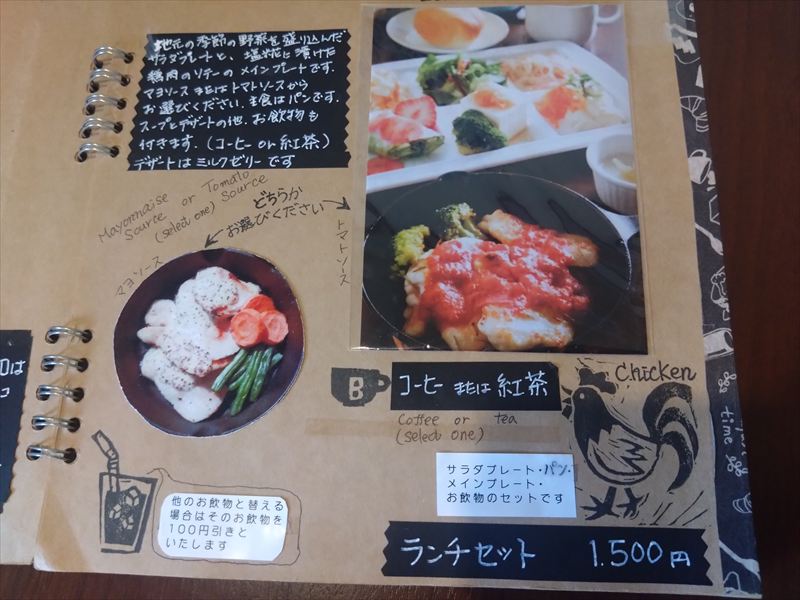 地元の季節の野菜を盛り込んだ
サラダプレートと、塩糀に漬けた
鶏肉のソテーのメインプレートです。
マヨソース または トマトソースから
お選びください。主食はパンです。
スープとデザートの他、お飲物も
付きます。(コーヒー or 紅茶)
デザートは ミルクゼリー です
Mayonnaise or Tomato
Sourte Source
(select one)
どちらか
お選びください
マヨソース
トマトソース
B コーヒー または 紅茶
Coffee or tea
(select one)
Chicken
サラダプレート・パン・
メインプレート・
お飲物のセットです
他のお飲物と替える
場合はそのお飲物を
100円引きと
いたします
ランチセット 1.500円
は
コ
time